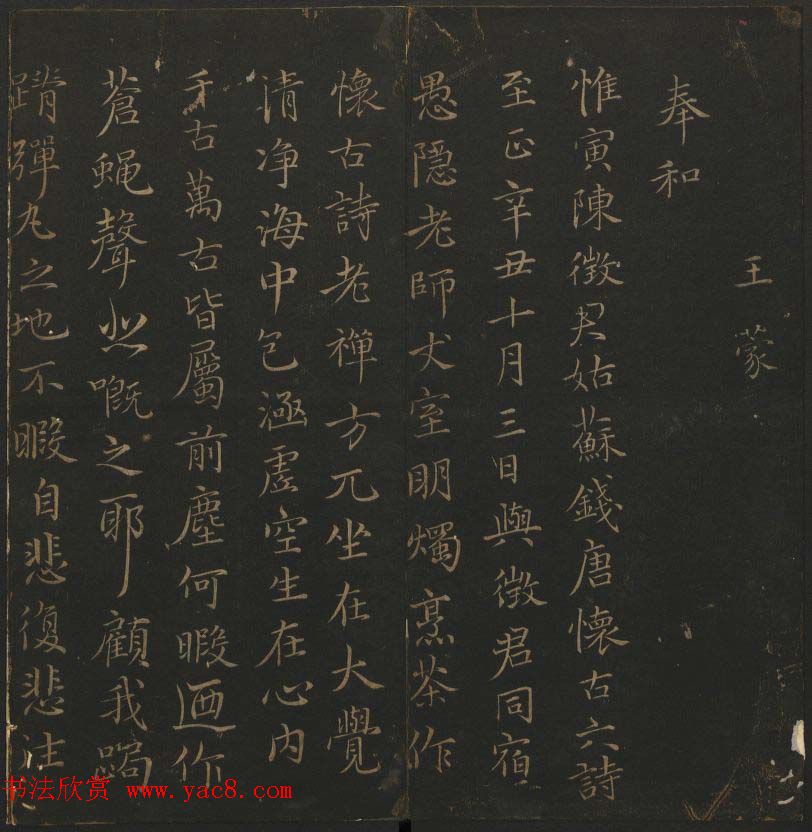 王蒙
奉和
惟寅陳徵君姑蘇錢唐懷古六詩
至正辛丑十月三日與徵君同宿
愚隱老師丈室明燭烹茶作
懷古詩老禪方兀坐在大覺
清净海中包涵虛空生在心內
千古萬古皆屬前塵何暇迺作
蒼蝇聲悲嘅之耶顧我跼
蹐彈丸之地不暇自悲復悲往
书法欣赏 www.yac8.com